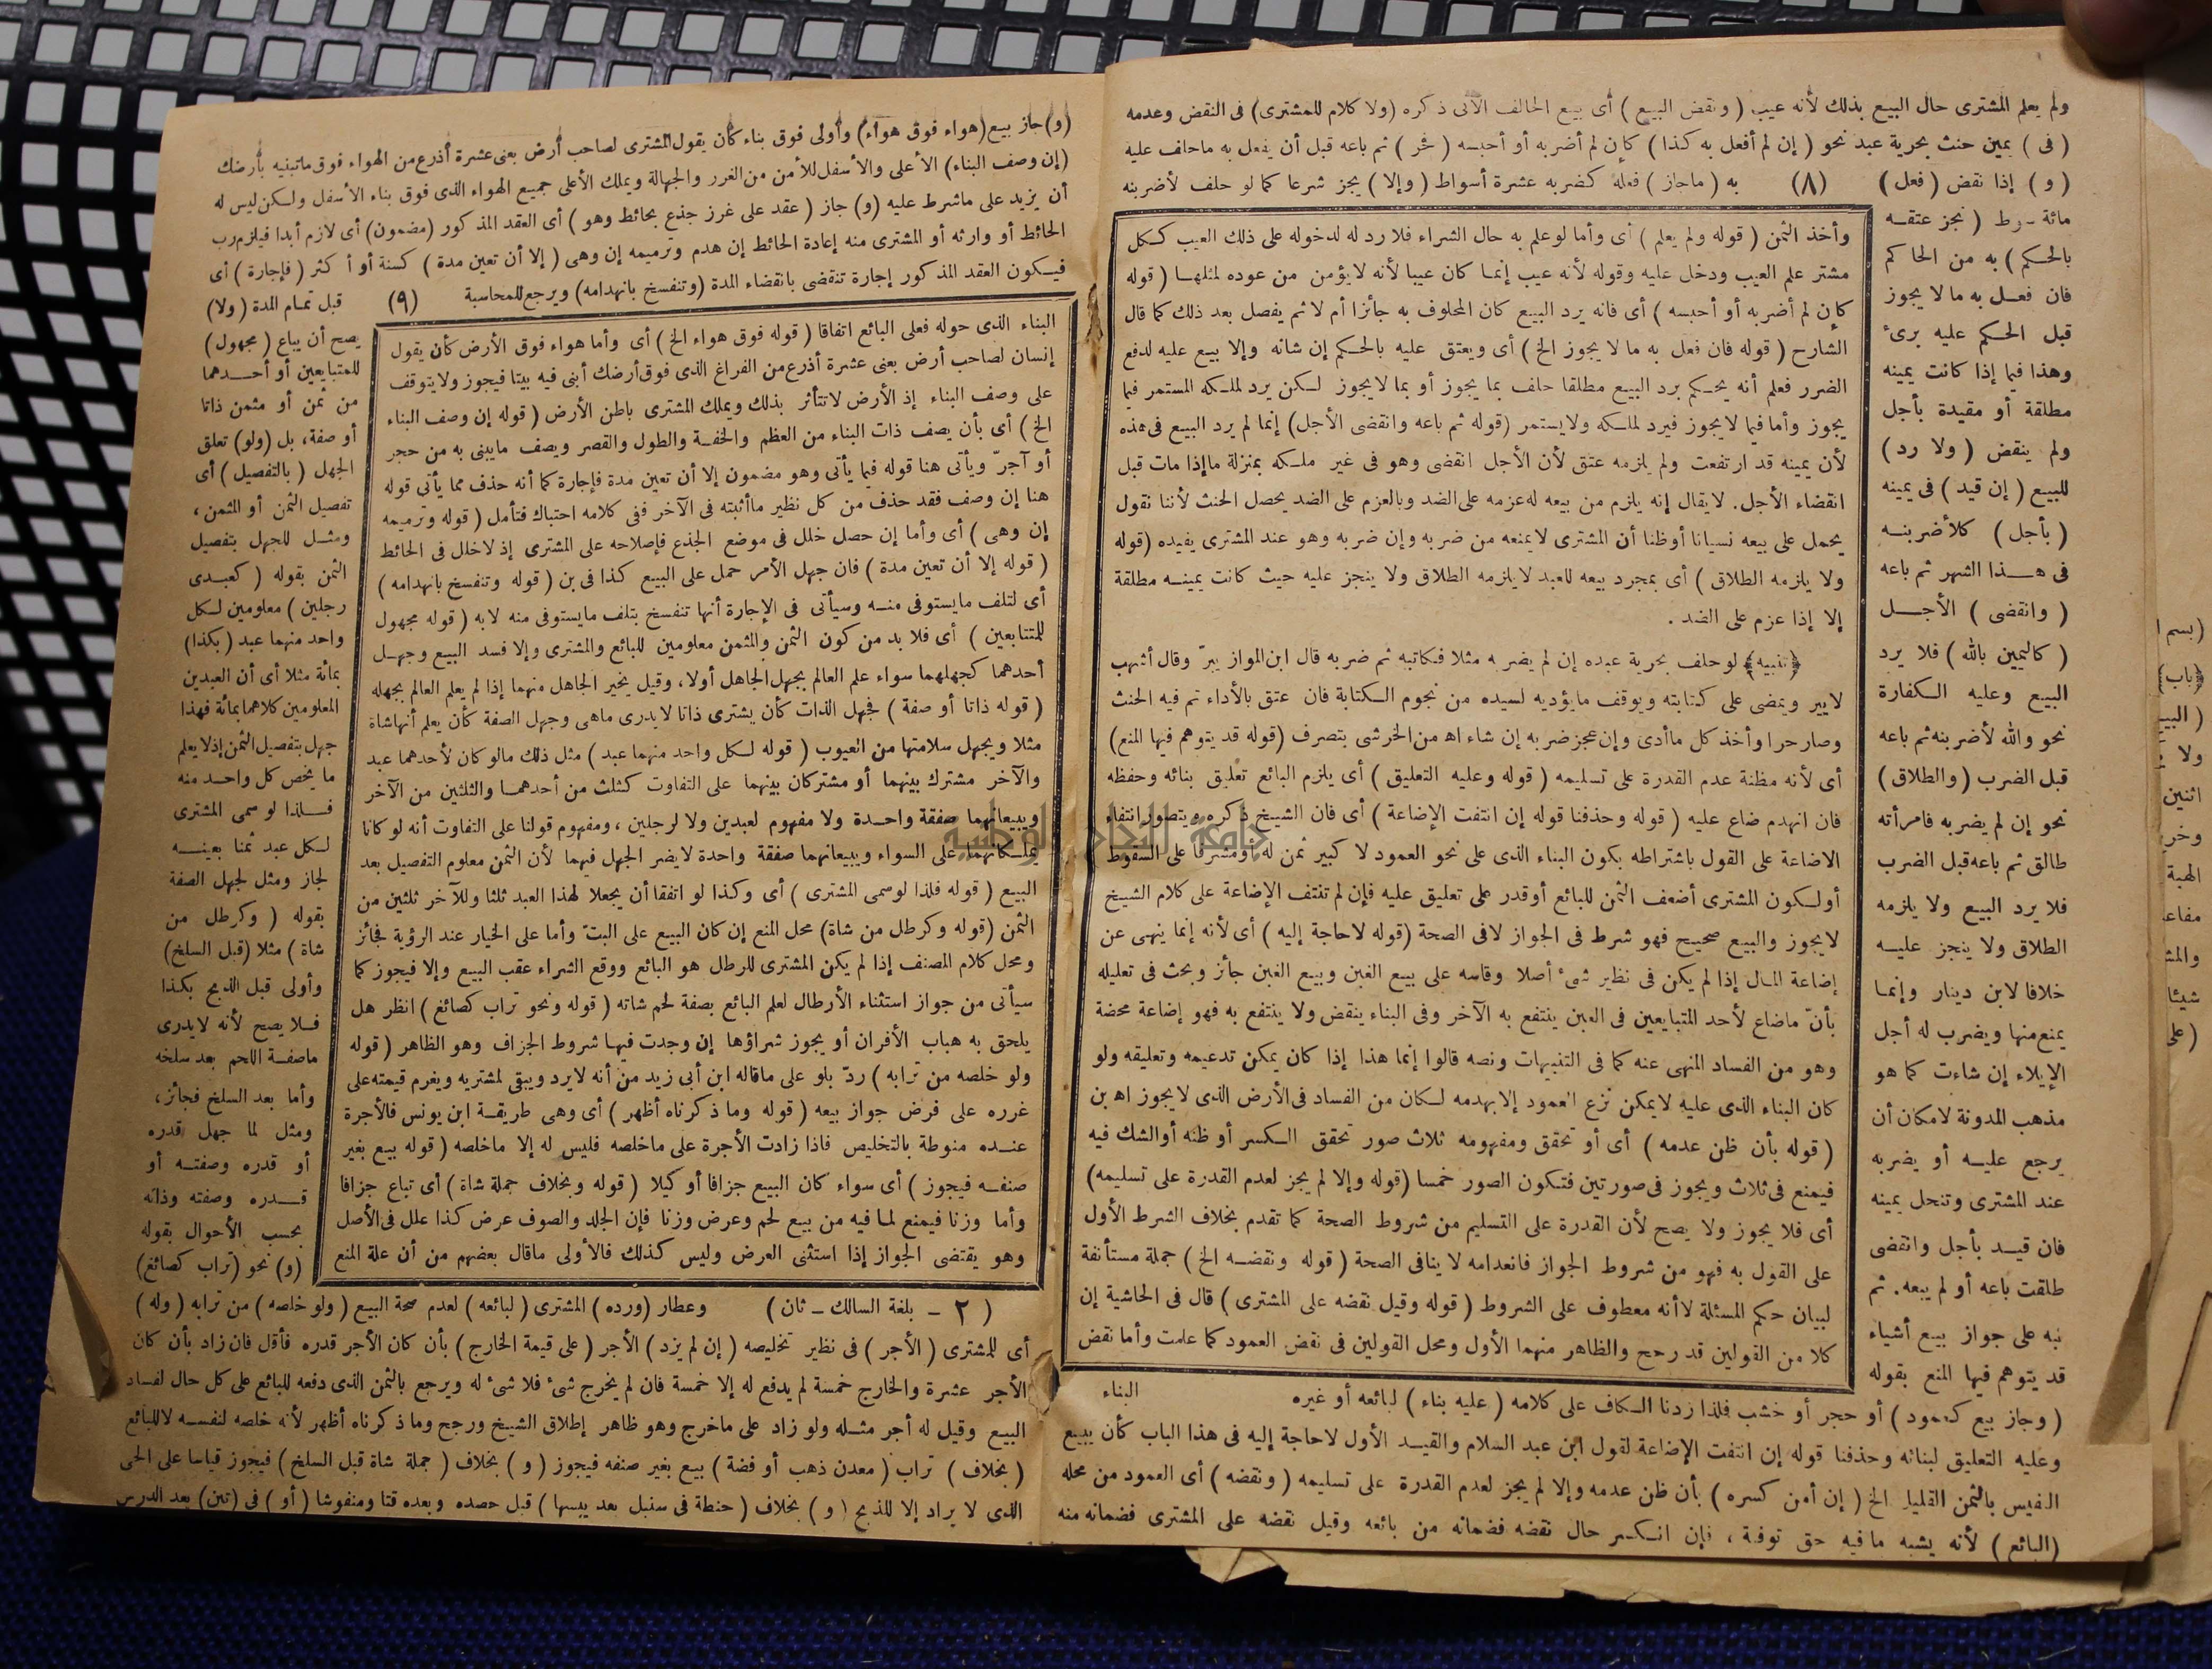 ولم يعلم المشترى حال البيع بذلك لأنه عيب (ونقض البيع) أى بيع الحالف الآتى ذكره (ولا كلام للمشترى) فى النقض وعدمه
(فى) يمين حنث بحرية عبد نحو (إن لم أفعل به كذا) كإن لم أضربه أو أحبسه (فحر) ثم باعه قبل أن يفعل به ماحلف عليه
(و) إذا نقض (فعل) (٨) به (ماجاز) فعله كضربه عشرة أسواط (وإلا) يجز شرعا كما لو حلف لأضربنه
مائة سوط (نجز عتقه
بالحكم) به من الحاكم
فان فعل به ما لا يجوز
قبل الحكم عليه برئ
وهذا فيما إذا كانت يمينه
مطلقة أو مقيدة بأجل
ولم ينقض (ولا رد)
للبيع (إن قيد) فى يمينه
(بأجل) كلأضربنه
فى هذا الشهر ثم باعه
(وانقضى) الأجل
(كاليمين بالله) فلا يرد
البيع وعليه الكفارة
نحو والله لأضربنه ثم باعه
قبل الضرب (والطلاق)
نحو إن لم يضربه فامرأته
طالق ثم باعه قبل الضرب
فلا يرد البيع ولا يلزمه
الطلاق ولا ينجز عليه
خلافا لابن دينار وإنما
يمنع منها ويضرب له أجل
الإيلاء إن شاءت كما هو
مذهب المدونة لامكان أن
يرجع عليه أو يضربه
عند المشترى وتنحل يمينه
فان قيد بأجل وانقضى
طلقت باعه أو لم يبعه. ثم
نبه على جواز بيع أشياء
قد يتوهم فيها المنع بقوله
وأخذ الثمن (قوله ولم يعلم) أى وأما لو علم به حال الشراء فلا رد له لدخوله على ذلك العيب ككل
مشتر علم العيب ودخل عليه وقوله لأنه عيب إنما كان عيبا لأنه لا يؤمن من عوده لمثلها (قوله
كإن لم أضربه أو أحبسه) أى فانه يرد البيع كان المحلوف به جائزا أم لا ثم يفصل بعد ذلك كما قال
الشارح (قوله فان فعل به ما لا يجوز الخ) أى ويعتق عليه بالحكم إن شانه وإلا بيع عليه لدفع
الضرر فعلم أنه يحكم برد البيع مطلقا حلف بما يجوز أو بما لا يجوز لكن يرد لملكه المستمر فيما
يجوز وأما فيما لا يجوز فيرد لملكه ولا يستمر (قوله ثم باعه وانقضى الأجل) إنما لم يرد البيع فى هذه
لأن يمينه قد ارتفعت ولم يلزمه عتق لأن الأجل انقضى وهو فى غير ملكه بمنزلة ما إذا مات قبل
انقضاء الأجل. لا يقال إنه يلزم من بيعه له عزمه على الضد وبالعزم على الضد يحصل الحنث لأننا نقول
يحمل على بيعه نسيانا أو ظنا أن المشترى لا يمنعه من ضربه وإن ضربه وهو عند المشترى يفيده (قوله
ولا يلزمه الطلاق) أى بمجرد بيعه للعبد لا يلزمه الطلاق ولا ينجز عليه حيث كانت يمينه مطلقة
إلا إذا عزم على الضد .
﴿تنبيه﴾ لو حلف بحرية عبده إن لم يضربه مثلا فكاتبه ثم ضربه قال ابن المواز يبرّ وقال أشهب
لا يبر ويمضى على كتابته ويوقف ما يؤديه لسيده من نجوم الكتابة فان عتق بالأداء تم فيه الحنث
وصار حرا وأخذ كل ما أدى وإن عجز ضربه إن شاء اه من الخرشى بتصرف (قوله قد يتوهم فيها المنع)
أى لأنه مظنة عدم القدرة على تسليمه (قوله وعليه التعليق) أى يلزم البائع تعليق بنائه وحفظه
فان انهدم ضاع عليه (قوله وحذفنا قوله إن انتفت الإضاعة) أى فان الشيخ ذكره ويتصور انتفاء
الاضاعة على القول باشتراطه بكون البناء الذى على نحو العمود لا كبير ثمن له أو مشرفا على السقوط
أو لكون المشترى أضعف الثمن للبائع أو قدر على تعليق عليه فإن لم تنتف الإضاعة على كلام الشيخ
لا يجوز والبيع صحيح فهو شرط فى الجواز لا فى الصحة (قوله لا حاجة إليه) أى لأنه إنما ينهى عن
إضاعة المال إذا لم يكن فى نظير شئ أصلا وقاسه على بيع الغبن وبيع الغبن جائز وبحث فى تعليله
بأنّ ماضاع لأحد المتبايعين فى الغبن ينتفع به الآخر وفى البناء ينقض ولا ينتفع به فهو إضاعة محضة
وهو من الفساد المنهى عنه كما فى التنبيهات ونصه قالوا إنما هذا إذا كان يمكن تدعيمه وتعليقه ولو
كان البناء الذى عليه لا يمكن نزع العمود إلا بهدمه لكان من الفساد فى الأرض الذى لا يجوز اه بن
(قوله بأن ظن عدمه) أى أو تحقق ومفهومه ثلاث صور تحقق الكسر أو ظنه أو الشك فيه
فيمنع فى ثلاث ويجوز فى صورتين فتكون الصور خمسا (قوله وإلا لم يجز لعدم القدرة على تسليمه)
أى فلا يجوز ولا يصح لأن القدرة على التسليم من شروط الصحة كما تقدم بخلاف الشرط الأول
على القول به فهو من شروط الجواز فانعدامه لا ينافى الصحة (قوله ونقضه الخ) جملة مستأنفة
لبيان حكم المسئلة لا أنه معطوف على الشروط (قوله وقيل نقضه على المشترى) قال فى الحاشية إن
كلا من القولين قد رجح والظاهر منهما الأول ومحل القولين فى نقض العمود كما علمت وأما نقض
البناء
(وجاز بيع كعمود) أو حجر أو خشب فلذا زدنا الكاف على كلامه (عليه بناء) لبائعه أو غيره
وعليه التعليق لبنائه وحذفنا قوله إن انتفت الإضاعة لقول ابن عبد السلام والقيد الأول لا حاجة إليه فى هذا الباب كأن يبيع
النفيس بالثمن القليل الخ (إن أمن كسره) بأن ظن عدمه وإلا لم يجز لعدم القدرة على تسليمه (ونقضه) أى العمود من محله
(البائع) لأنه يشبه ما فيه حق توفية ، فإن انكسر حال نقضه فضمانه من بائعه وقيل نقضه على المشترى فضمانه منه
(و) جاز بيع (هواء فوق هواء) وأولى فوق بناء كأن يقول المشترى لصاحب أرض بعنى عشرة أذرع من الهواء فوق ما تبنيه بأرضك
(إن وصف البناء) الأعلى والأسفل للأمن من الغرر والجهالة ويملك الأعلى جميع الهواء الذى فوق بناء الأسفل ولكن ليس له
أن يزيد على ماشرط عليه (و) جاز (عقد على غرز جذع بحائط وهو) أى العقد المذكور (مضمون) أى لازم أبدا فيلزم رب
الحائط أو وارثه أو المشترى منه إعادة الحائط إن هدم وترميمه إن وهى (إلا أن تعين مدة) كسنة أو أكثر (فإجارة) أى
فيكون العقد المذكور إجارة تنقضى بانقضاء المدة (وتنفسخ بانهدامه) ويرجع للمحاسبة (٩) قبل تمام المدة (ولا)
يصح أن يباع (مجهول)
للمتبايعين أو أحدهما
من ثمن أو مثمن ذاتا
أو صفة، بل (ولو) تعلق
الجهل (بالتفصيل) أى
تفصيل الثمن أو المثمن ،
ومثل للجهل بتفصيل
الثمن بقوله (كعبدى
رجلين) معلومين لكل
واحد منهما عبد (بكذا)
بمائة مثلا أى أن العبدين
المعلومين كلاهما بمائة فهذا
جهل بتفصيل الثمن إذ لا يعلم
ما يخص كل واحد منه
فلذا لو سمى المشترى
لكل عبد ثمنا بعينه
لجاز ومثل لجهل الصفة
بقوله (وكرطل من
شاة) مثلا (قبل السلخ)
وأولى قبل الذبح بكذا
فلا يصح لأنه لا يدرى
ماصفة اللحم بعد سلخه
وأما بعد السلخ فجائز ،
ومثل لما جهل قدره
أو قدره وصفته أو
قدره وصفته وذاته
بحسب الأحوال بقوله
(و) نحو (تراب كصائغ)
البناء الذى حوله فعلى البائع اتفاقا (قوله فوق هواء الخ) أى وأما هواء فوق الأرض كأن يقول
إنسان لصاحب أرض بعنى عشرة أذرع من الفراغ الذى فوق أرضك أبنى فيه بيتا فيجوز ولا يتوقف
على وصف البناء إذ الأرض لا تتأثر بذلك ويملك المشترى باطن الأرض (قوله إن وصف البناء
الخ) أى بأن يصف ذات البناء من العظم والخفة والطول والقصر ويصف ما يبنى به من حجر
أو آجرّ ويأتى هنا قوله فيما يأتى وهو مضمون إلا أن تعين مدة فإجارة كما أنه حذف مما يأتى قوله
هنا إن وصف فقد حذف من كل نظير ما أثبته فى الآخر ففى كلامه احتباك فتأمل (قوله وترميمه
إن وهى) أى وأما إن حصل خلل فى موضع الجذع فإصلاحه على المشترى إذ لا خلل فى الحائط
(قوله إلا أن تعين مدة) فان جهل الأمر حمل على البيع كذا فى بن (قوله وتنفسخ بانهدامه)
أى لتلف ما يستوفى منه وسيأتى فى الإجارة أنها تنفسخ بتلف ما يستوفى منه لا به (قوله مجهول
للمتبايعين) أى فلا بد من كون الثمن والمثمن معلومين للبائع والمشترى وإلا فسد البيع وجهل
أحدهما كجهلهما سواء علم العالم بجهل الجاهل أولا، وقيل يخير الجاهل منهما إذا لم يعلم العالم بجهله
(قوله ذاتا أو صفة) فجهل الذات كأن يشترى ذاتا لا يدرى ماهى وجهل الصفة كأن يعلم أنها شاة
مثلا ويجهل سلامتها من العيوب (قوله لكل واحد منهما عبد) مثل ذلك مالو كان لأحدهما عبد
والآخر مشترك بينهما أو مشتركان بينهما على التفاوت كثلث من أحدهما والثلثين من الآخر
ويبيعانهما صفقة واحدة ولا مفهوم لعبدين ولا لرجلين ، ومفهوم قولنا على التفاوت أنه لو كانا
يملكانهما على السواء ويبيعانهما صفقة واحدة لا يضر الجهل فيهما لأن الثمن معلوم التفصيل بعد
البيع (قوله فلذا لو سمى المشترى) أى وكذا لو اتفقا أن يجعلا لهذا العبد ثلثا وللآخر ثلثين من
الثمن (قوله وكرطل من شاة) محل المنع إن كان البيع على البتّ وأما على الخيار عند الرؤية فجائز
ومحل كلام المصنف إذا لم يكن المشترى للرطل هو البائع ووقع الشراء عقب البيع وإلا فيجوز كما
سيأتى من جواز استثناء الأرطال لعلم البائع بصفة لحم شاته (قوله ونحو تراب كصائغ) انظر هل
يلحق به هباب الأفران أو يجوز شراؤها إن وجدت فيها شروط الجزاف وهو الظاهر (قوله
ولو خلصه من ترابه) ردّ بلو على ماقاله ابن أبى زيد من أنه لا يرد ويبقى لمشتريه ويغرم قيمته على
غرره على فرض جواز بيعه (قوله وما ذكرناه أظهر) أى وهى طريقة ابن يونس فالأجرة
عنده منوطة بالتخليص فاذا زادت الأجرة على ماخلصه فليس له إلا ماخلصه (قوله بيع بغير
صنفه فيجوز) أى سواء كان البيع جزافا أو كيلا (قوله وبخلاف جملة شاة) أى تباع جزافا
وأما وزنا فيمنع لما فيه من بيع لحم وعرض وزنا فإن الجلد والصوف عرض كذا علل فى الأصل
وهو يقتضى الجواز إذا استثنى العرض وليس كذلك فالأولى ماقال بعضهم من أن علة المنع
(٢ - بلغة السالك - ثان) وعطار (ورده) المشترى (لبائعه) لعدم صحة البيع (ولو خلصه) من ترابه (وله)
أى للمشترى (الأجر) فى نظير تخليصه (إن لم يزد) الأجر (على قيمة الخارج) بأن كان الأجر قدره فأقل فان زاد بأن كان
الأجر عشرة والخارج خمسة لم يدفع له إلا خمسة فان لم يخرج شئ فلا شئ له ويرجع بالثمن الذى دفعه للبائع على كل حال لفساد
البيع وقيل له أجر مثله ولو زاد على ماخرج وهو ظاهر إطلاق الشيخ ورجح وما ذكرناه أظهر لأنه خلصه لنفسه لا للبائع
(بخلاف) تراب (معدن ذهب أو فضة) بيع بغير صنفه فيجوز (و) بخلاف (جملة شاة قبل السلخ) فيجوز قياسا على الحى
الذى لا يراد إلا للذبح (و) بخلاف (حنطة فى سنبل بعد يبسها) قبل حصده وبعده قتا ومنفوشا (أو) فى (تبن) بعد الدرس
جامعة النجاح الوطنية